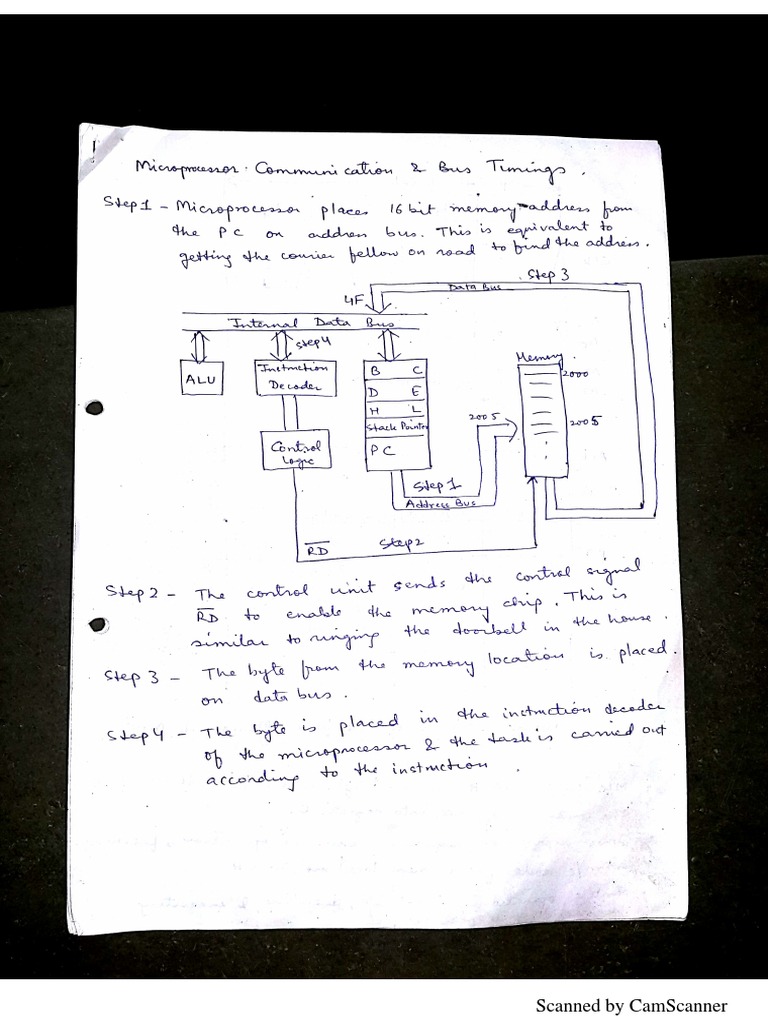 Microprocessor Communication & Bus Timings.
Step 1 - Microprocessor places 16 bit memory address from
the PC on address bus. This is equivalent to
getting the courier fellow on road to find the address.
Step 3
Data Bus
4F
Internal Data Bus
Step 4
ALU
Instruction
Decoder
B C
D E
H L
Stack Pointer
PC
Memory
2000
2005
2005
Control
Logic
Step 1
Address Bus
R̅D̅
Step 2
Step 2 - The control unit sends the control signal
R̅D̅ to enable the memory chip. This is
similar to ringing the doorbell in the house.
Step 3 - The byte from the memory location is placed.
on data bus.
Step 4 - The byte is placed in the instruction decoder
of the microprocessor & the task is carried out
according to the instruction.
Scanned by CamScanner